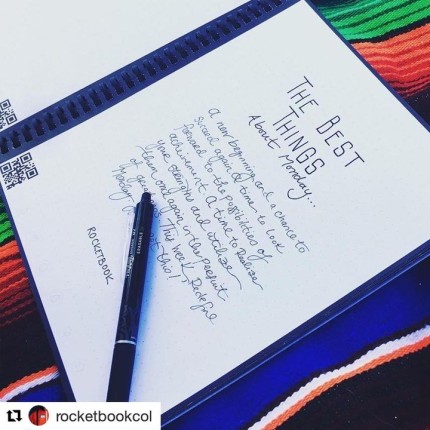 THE BEST
THINGS
About Monday...
A new beginning and a chance to
again a time to look
forward to the possibilities of
achievement. A time to Realize
your strengths and utilize
them once again in this pursuit
of This Week Redefine
this!
ROCKETBOOK
rocketbookcol